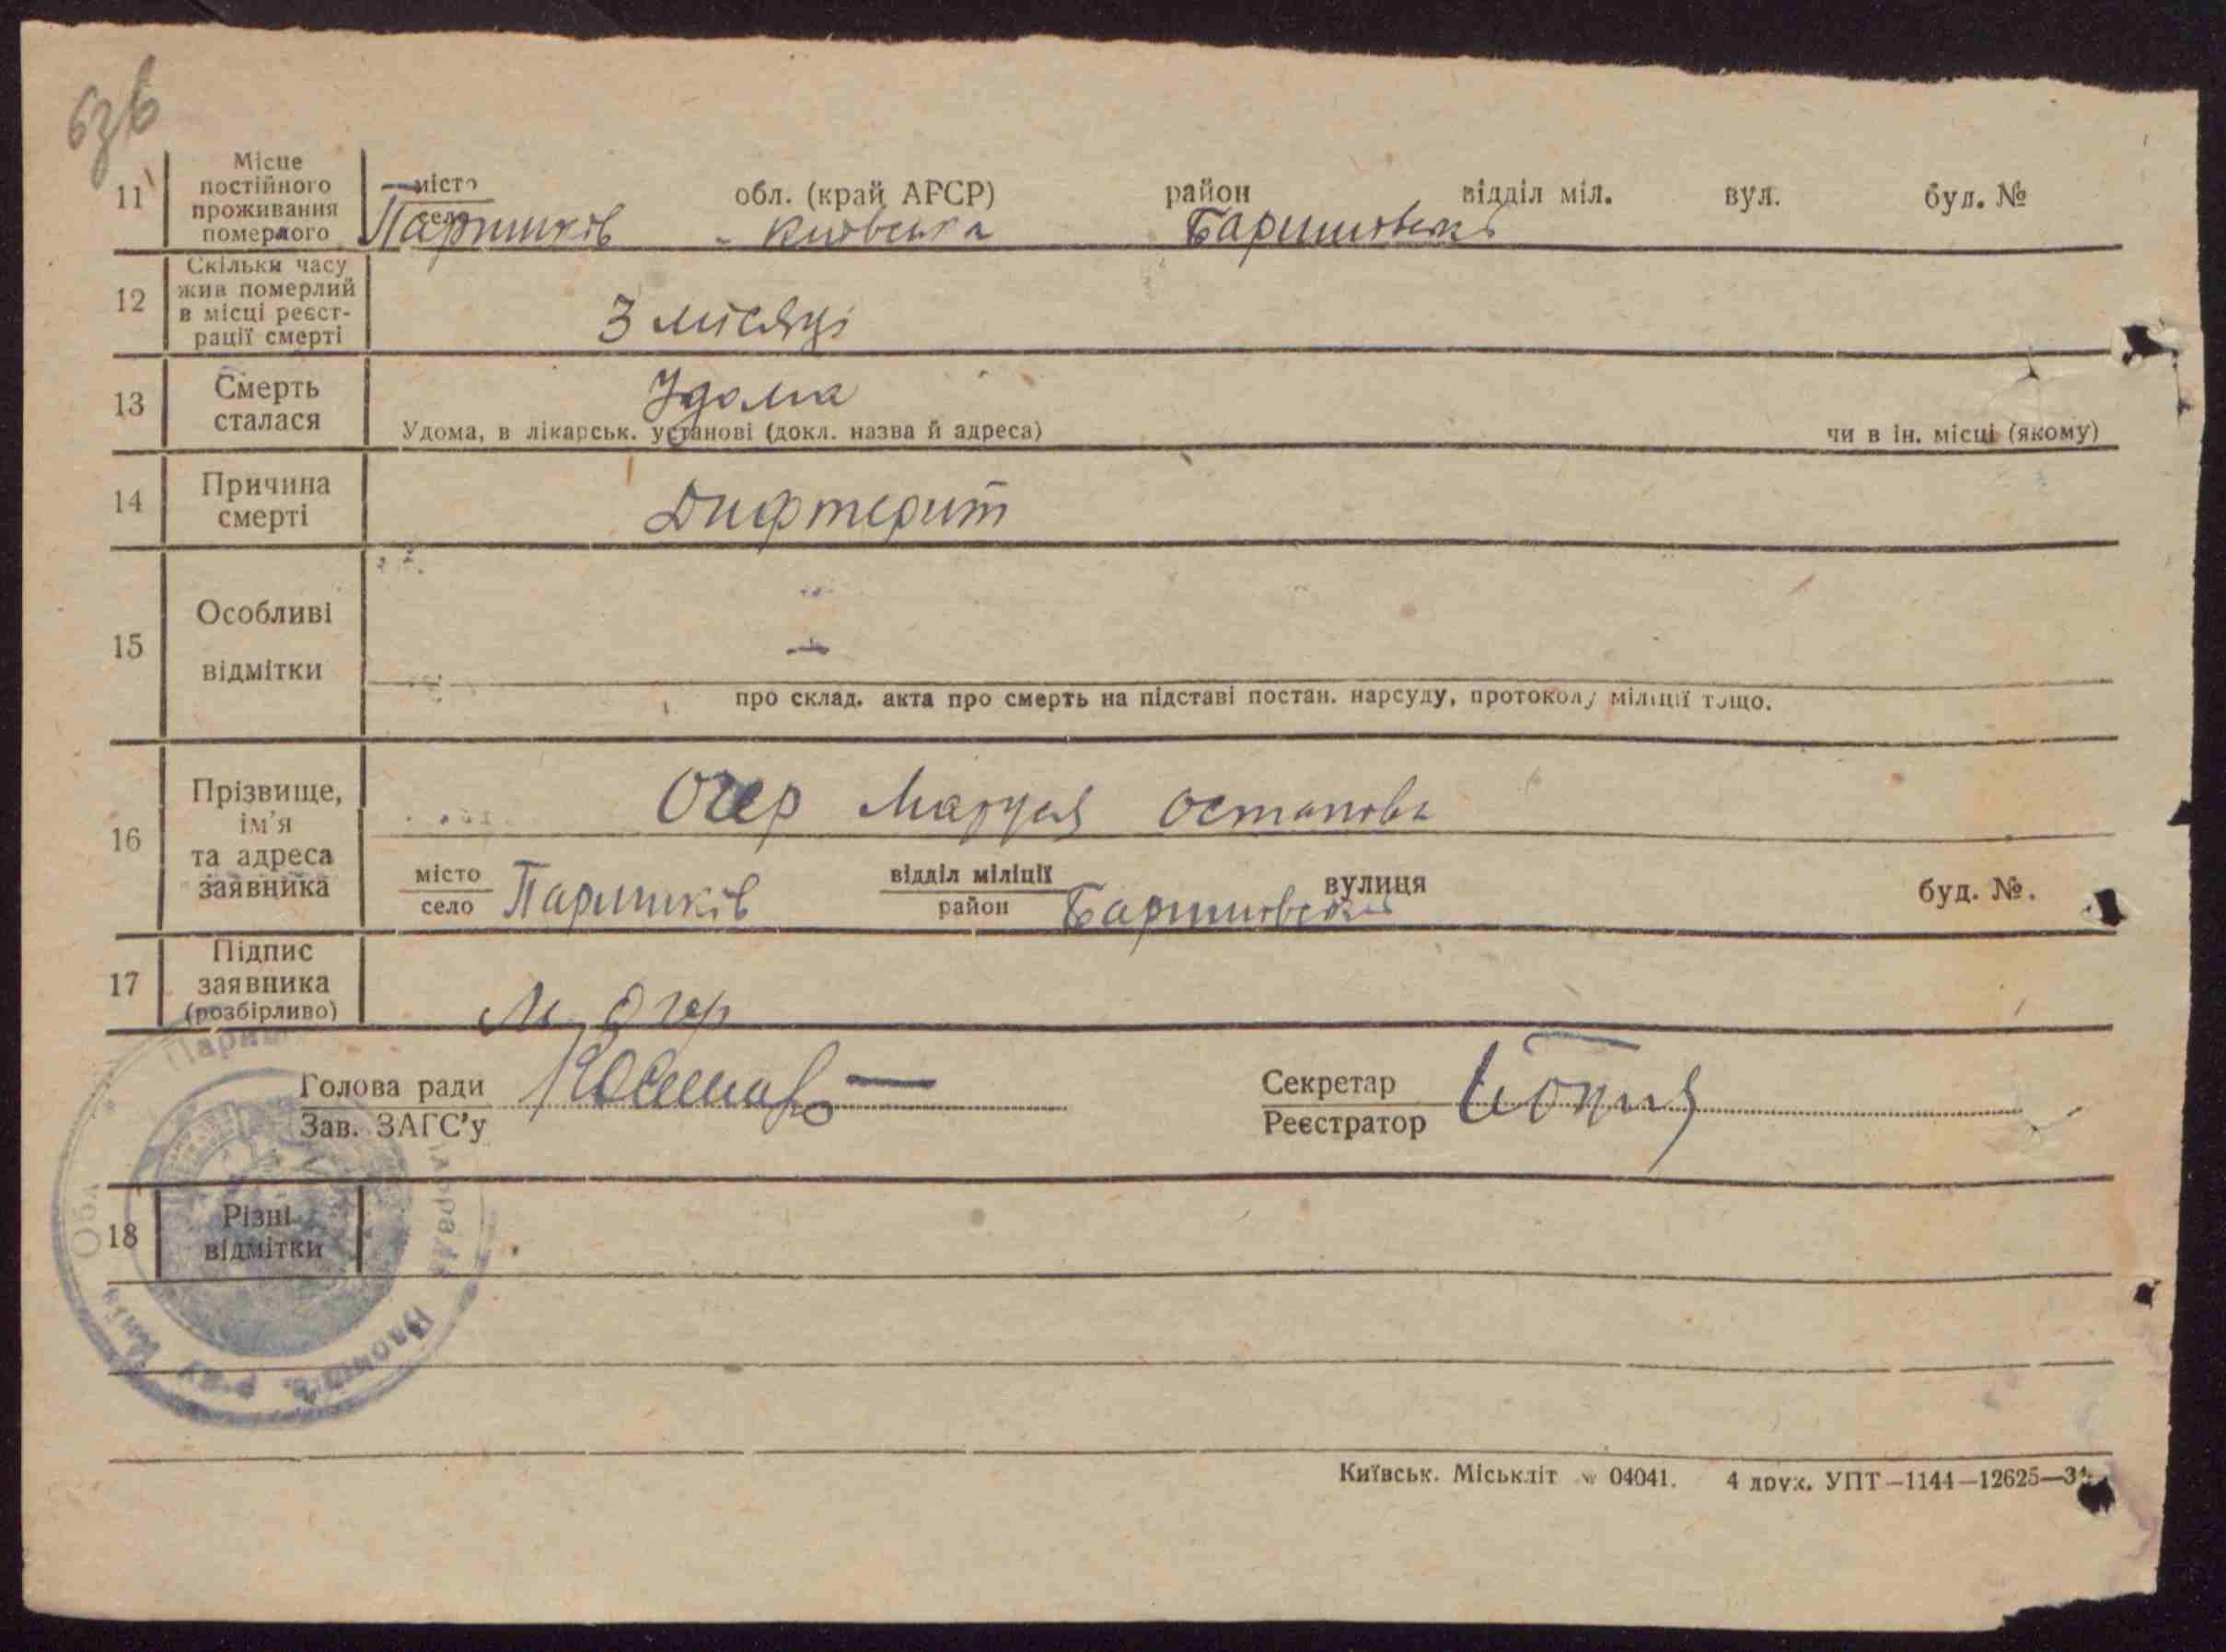 636
11 Місце постійного проживання померлого
місто
село
обл. (край АРСР) район відділ міл. вул. буд. №
Паришків - Київська Баришівськ
12 Скільки часу жив померлий в місці реєстрації смерті
3 місяці
13 Смерть сталася
Удома
Удома, в лікарськ. установі (докл. назва й адреса) чи в ін. місці (якому)
14 Причина смерті
Дифтерит
15 Особливі відмітки
про склад. акта про смерть на підставі постан. нарсуду, протоколу міліції тощо.
16 Прізвище, ім'я та адреса заявника
Огер Маруся Остаповн
місто
село
Паришків
відділ міліції
район
Баришівськ
вулиця
буд. №.
17 Підпис заявника (розбірливо)
М. Огер
Голова ради
Зав. ЗАГС'у
Секретар
Реєстратор
18 Різні відмітки
Київськ. Міськліт № 04041. 4 друк. УПТ—1144—12625—34